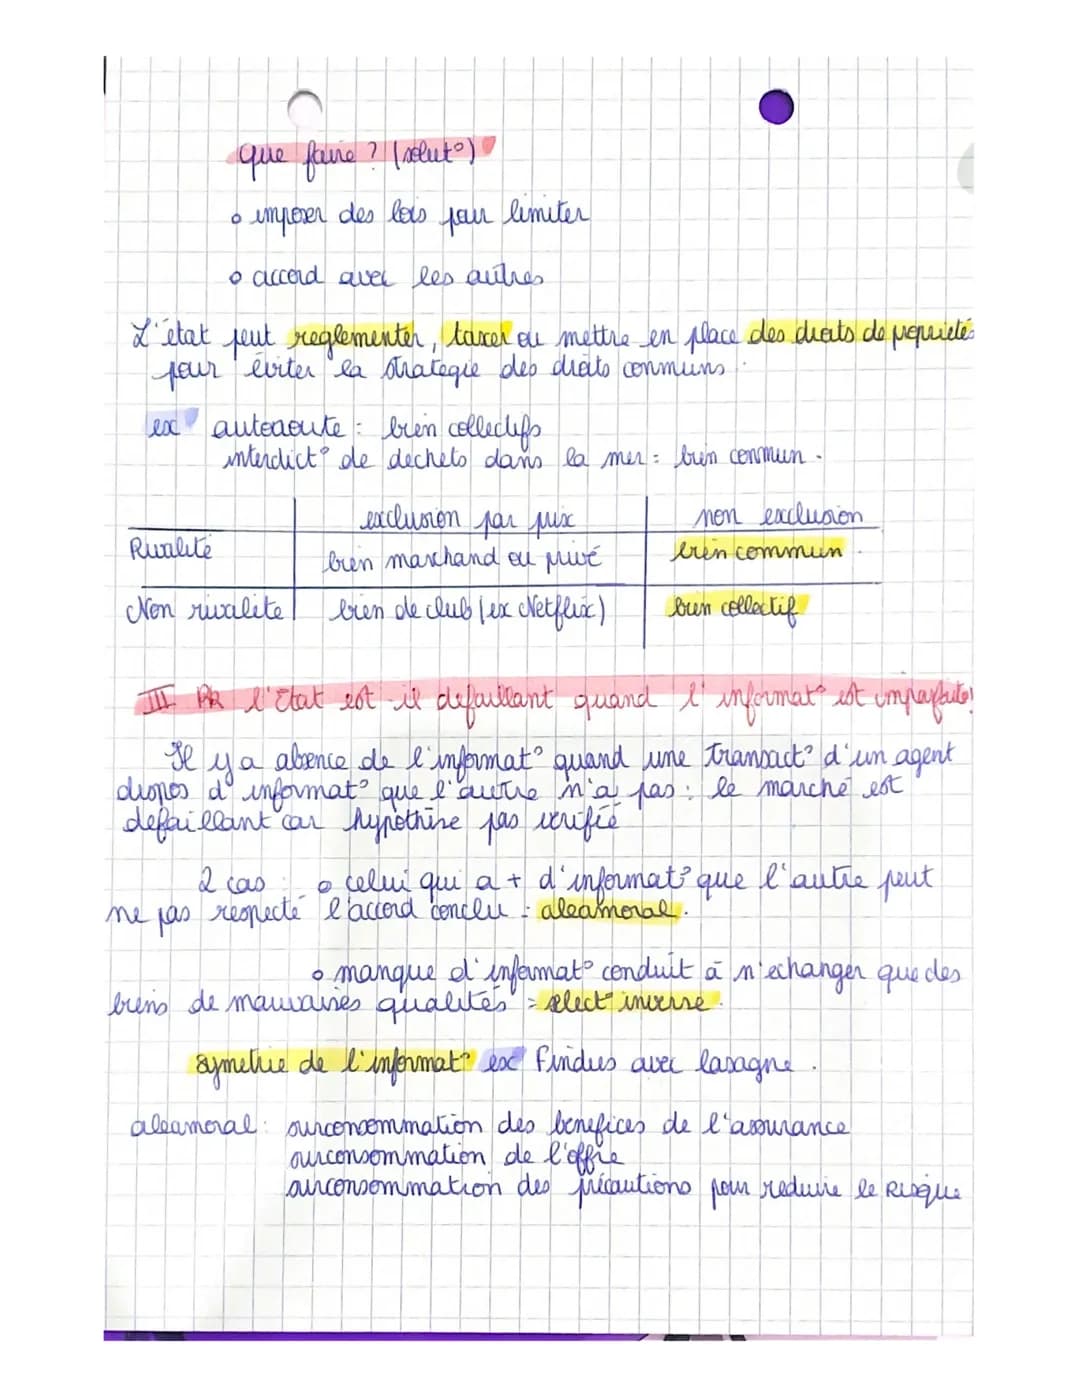 que faire ? (solut°)
o imposer des lois pour limiter
o accord avec les autres
L'état peut reglementer, taxer ou mettre en place des droits de propriétés
pour éviter la strategie des droits communs.
ex autoroute : bien collectifs
interdict° de dechets dans la mer = bien commun.
exclusion par prix non exclusion
Rivalité bien marchand ou privé bien commun.
Non rivalite bien de club (ex Netflix) bien collectif
III l'Etat est-il defaillant quand l'informat° est imparfaite?
Il y a absence de l'informat° quand une transact° d'un agent
dispos d'informat° que l'autre n'a pas : le marché est
defaillant car hypothèse pas vérifié
2 cas : o celui qui a + d'informat° que l'autre peut
ne pas respecté l'accord conclu = aleamoral.
o manque d'informat° conduit à n'echanger que des
biens de mauvaises qualités = select° inverse.
symetrie de l'informat° ex Findus avec lasagne.
aleamoral : surconsommation des benefices de l'assurance
surconsommation de l'offre
surconsommation des précautions pour reduire le Risque